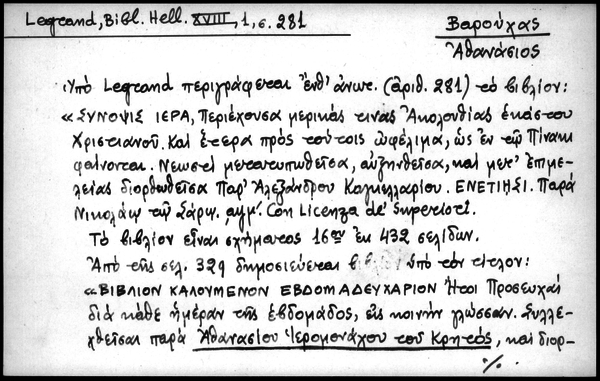 Legrand, Bibl. Hell. XVIII, 1, σ. 281
Βαρούχας
Ἀθανάσιος
Ὑπὸ Legrand περιγράφεται ἔνθ' ἀνωτ. (ἀριθ. 281) τὸ βιβλίον:
«ΣΥΝΟΨΙΣ ΙΕΡΑ, Περιέχουσα μερικάς τινας Ἀκολουθίας ἑκάστου
Χριστιανοῦ. Καὶ ἕτερα πρὸς τούτοις ὠφέλιμα, ὡς ἐν τῷ Πίνακι
φαίνονται. Νεωστὶ μετατυπωθεῖσα, αὐξηνθεῖσα, καὶ μετ' ἐπιμε-
λείας διορθωθεῖσα Παρ' Ἀλεξάνδρου Καγκελλαρίου. ΕΝΕΤΙῌΣΙ. Παρὰ
Νικολάῳ τῷ Σάρῳ. αψμ'. Con Licenza de' Superiori.
Τὸ βιβλίον εἶναι σχήματος 16ου ἐκ 432 σελίδων.
Ἀπὸ τῆς σελ. 329 δημοσιεύεται ὑπὸ τὸν τίτλον:
«ΒΙΒΛΙΟΝ ΚΑΛΟΥΜΕΝΟΝ ΕΒΔΟΜΑΔΕΥΧΑΡΙΟΝ Ἤτοι Προσευχαὶ
διὰ κάθε ἡμέραν τῆς ἑβδομάδος, εἰς κοινὴν γλῶσσαν. Συλλε-
χθεῖσαι παρὰ Ἀθανασίου Ἱερομονάχου τοῦ Κρητός, καὶ διορ-
·/.